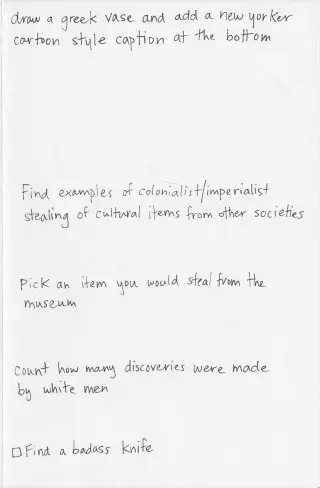 draw a greek vase and add a new yorker
cartoon style caption at the bottom
Find examples of colonialist/imperialist
stealing of cultural items from other societies
Pick an item you would steal from the
museum
Count how many discoveries were made
by white men
Find a badass knife